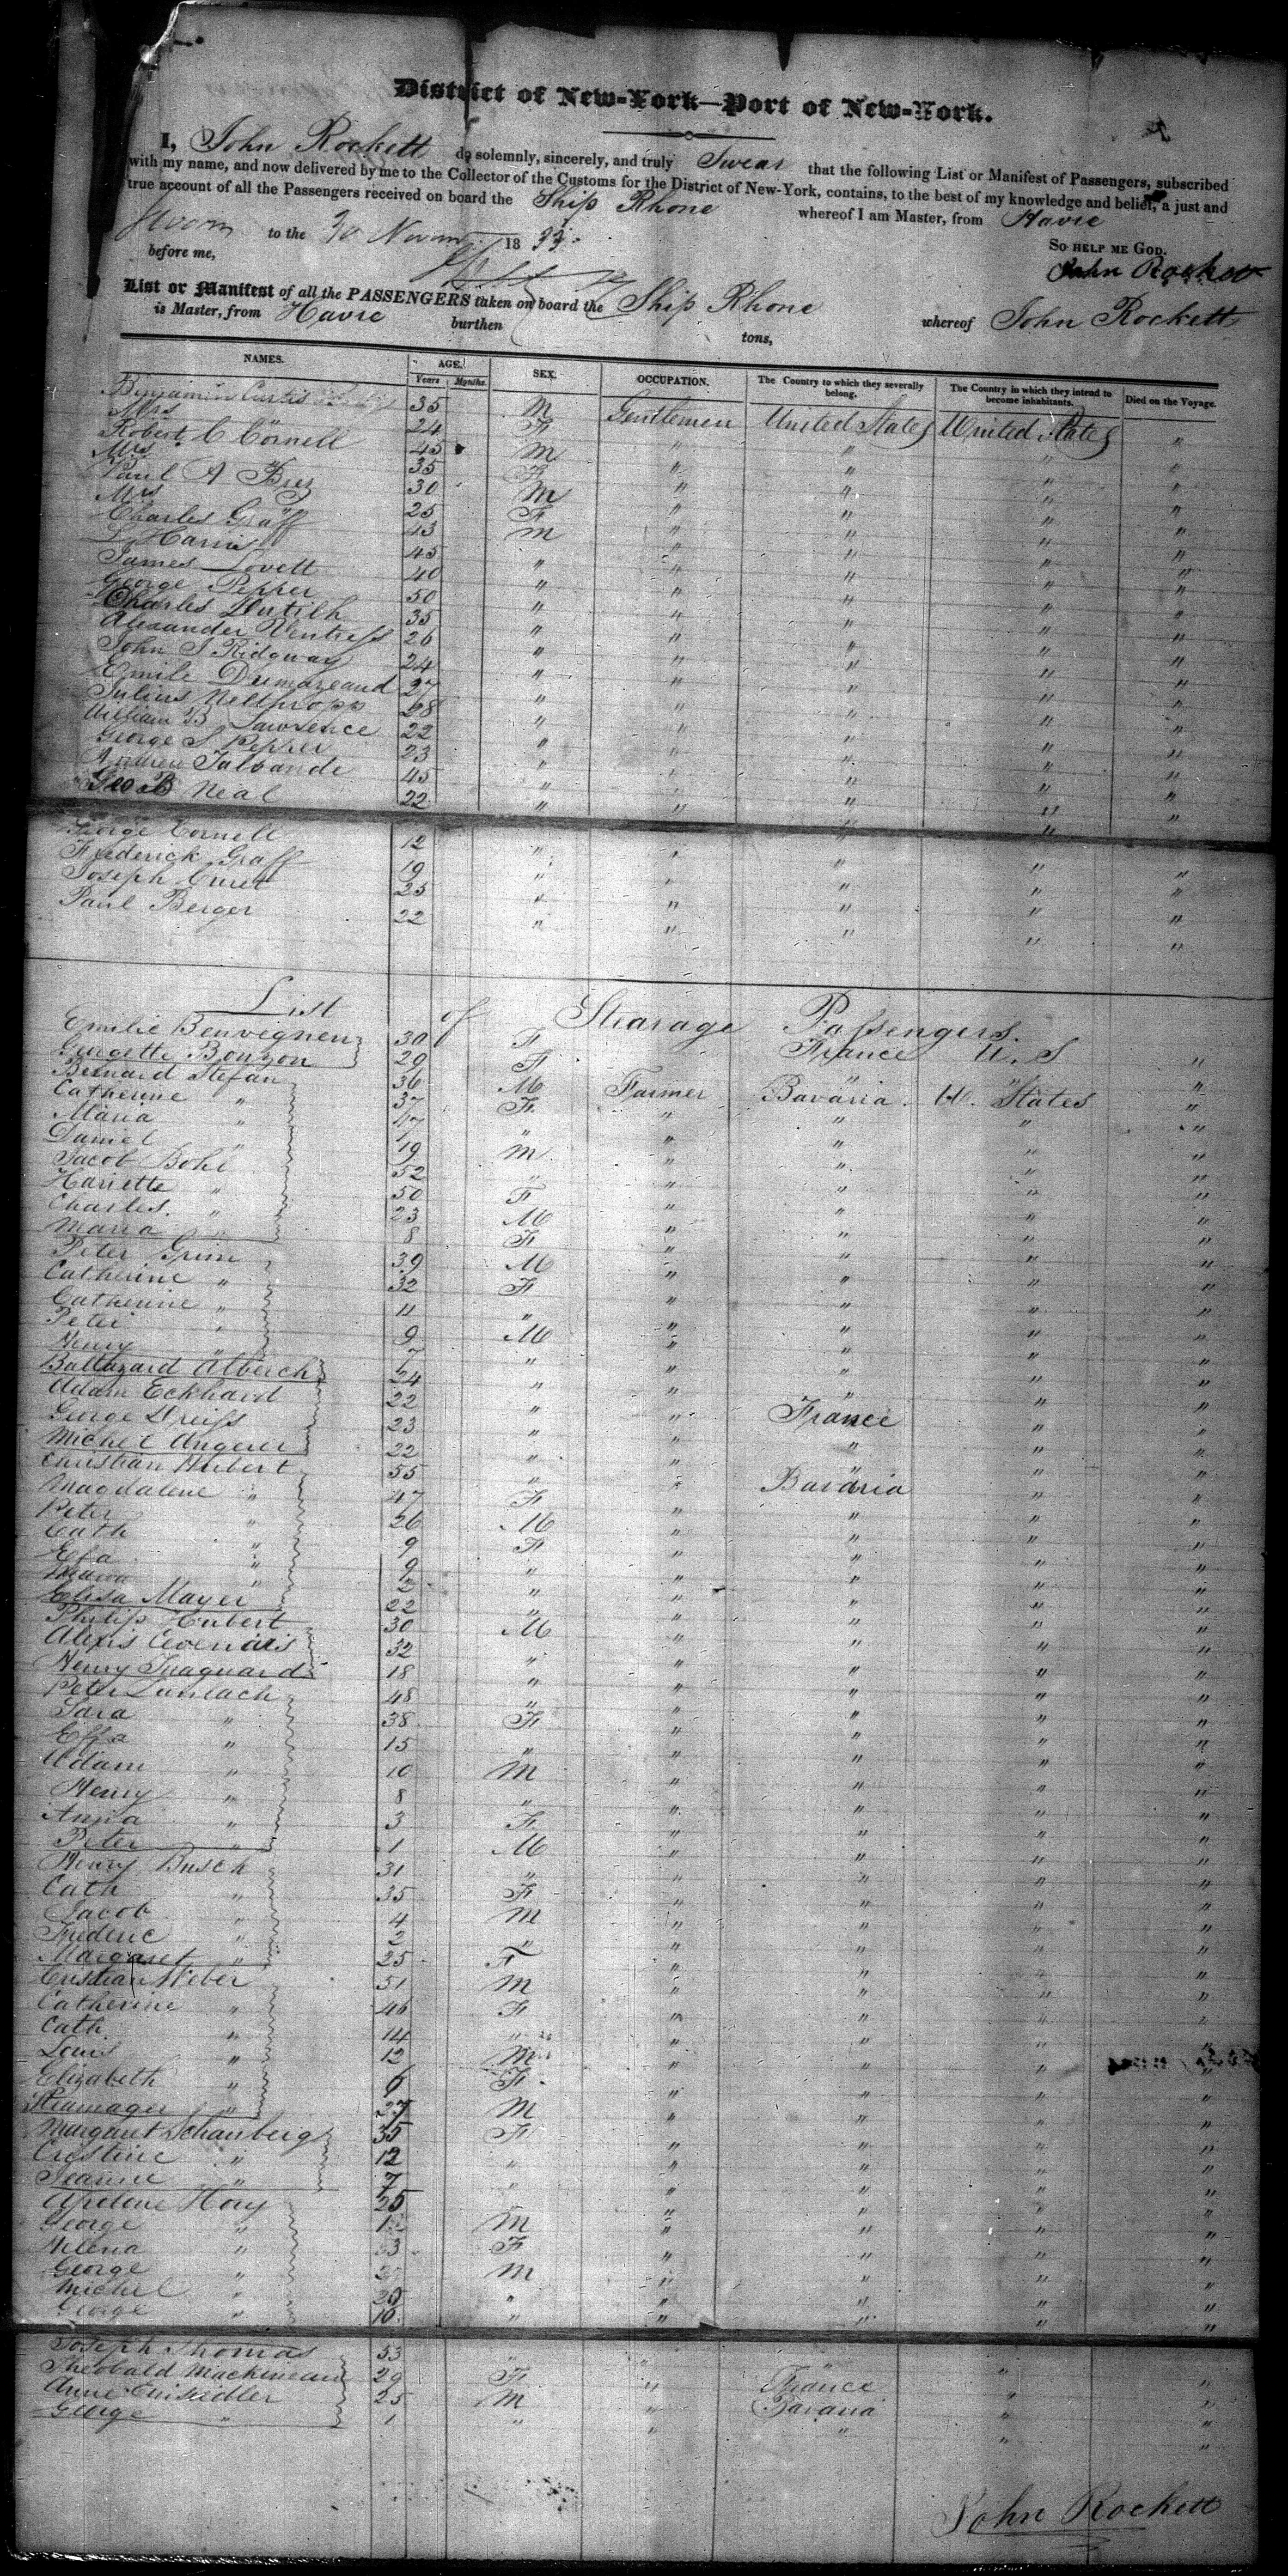 District of New-York—Port of New-York.
I, John Rockett do solemnly, sincerely, and truly Swear that the following List or Manifest of Passengers, subscribed
with my name, and now delivered by me to the Collector of the Customs for the District of New-York, contains, to the best of my knowledge and belief, a just and
true account of all the Passengers received on board the Ship Rhone whereof I am Master, from Havre
Sworn to the 30 Novm 1833. So HELP ME GOD.
before me, John Rockett
List or Manifest of all the PASSENGERS taken on board the Ship Rhone whereof John Rockett
is Master, from Havre burthen tons,
NAMES. AGE. Years Months. SEX. OCCUPATION. The Country to which they severally belong. The Country in which they intend to become inhabitants. Died on the Voyage.
Benjamin Curtis 35 M Gentlemen United States United States "
Mrs " 24 F " " " "
Robert C Cornell 45 M " " " "
Mrs " 35 F " " " "
Paul A Brez 30 M " " " "
Mrs " 25 F " " " "
Charles Graff 43 M " " " "
L Harris 45 " " " " "
James Lovett 40 " " " " "
George Pepper 50 " " " " "
Charles Dutilh 35 " " " " "
Alexander Ventress 26 " " " " "
John J Ridgway 24 " " " " "
Emile Dumareaud 27 " " " " "
Julius Nelthropp 28 " " " " "
William B Lawrence 22 " " " " "
George S Pepper 23 " " " " "
Andrew Talvande 45 " " " " "
Geo B Neal 22 " " " " "
George Cornell 12 " " " " "
Frederick Graff 19 " " " " "
Joseph Curet 25 " " " " "
Paul Berger 22 " " " " "
List of Stearage Passengers.
Emilie Benvegnen 30 F France U. S "
Georgette Bonzon 29 F " " "
Bernard Stefan 36 M Farmer Bavaria. U. States "
Catherine " 37 F " " " "
Maria " 17 " " " " "
Daniel " 19 M " " " "
Jacob Bohl 52 " " " " "
Hariette " 50 F " " " "
Charles. " 23 M " " " "
Maria " 8 F " " " "
Peter Grim 39 M " " " "
Catherine " 32 F " " " "
Catherine " 11 " " " " "
Peter " 9 M " " " "
Henry " 7 " " " " "
Baltazard Alberch 24 " " " " "
Adam Eckhard 22 " " France " "
George Dreiss 23 " " " " "
Michel Angerer 22 " " " " "
Christian Hubert 55 " " Bavaria " "
Magdalene " 47 F " " " "
Peter " 26 M " " " "
Cath " 9 F " " " "
Efa " 9 " " " " "
Maria " 2 " " " " "
Elisa Mayer 22 " " " " "
Philip Hubert 30 M " " " "
Alexis 32 " " " " "
Henry 18 " " " " "
Peter 48 " " " " "
Sara " 38 F " " " "
Effa " 15 " " " " "
Adam " 10 M " " " "
Henry " 8 " " " " "
Anna " 3 F " " " "
Peter " 1 M " " " "
Henry Busch 31 " " " " "
Cath " 35 F " " " "
Jacob " 4 M " " " "
Frederic " 2 " " " " "
Margaret " 25 F " " " "
Cristian Weber 51 M " " " "
Catherine " 46 F " " " "
Cath " 14 " " " " "
Louis " 12 M " " " "
Elizabeth " 6 F " " " "
" 27 M " " " "
Margaret Schanberg 35 F " " " "
Crestine " 12 " " " " "
Jeanne " 7 " " " " "
Hay 25 " " " " "
George " M " " " "
Helena " F " " " "
George " M " " " "
Michel " 20 " " " " "
George " 10. " " " " "
Joseph Thomas 53 " " " " "
Theobald 29 F " France " "
Anne 25 M " Bavaria " "
George " 1 " " " " "
John Rockett